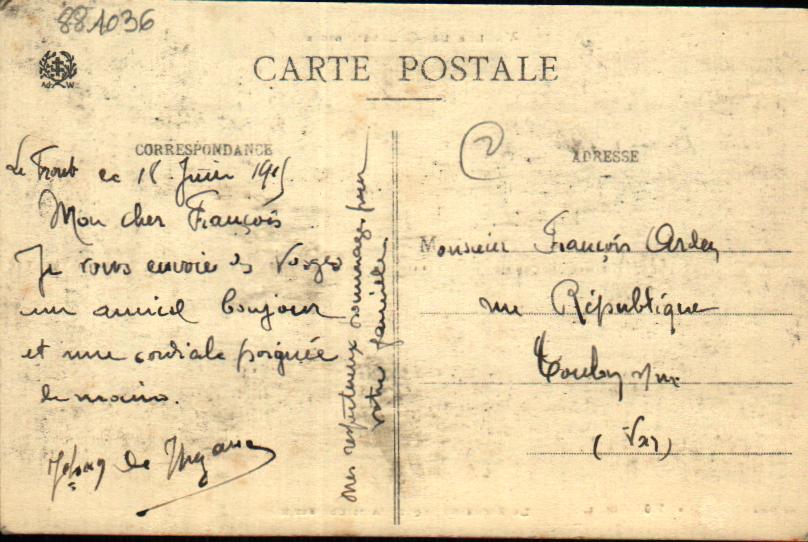 881036
CARTE POSTALE
CORRESPONDANCE
Le Front ce 18 Juin 1915
Mon cher François
Je vous envoie des Vosges
un amical bonjour
et une cordiale poignée
de mains.
de
Mes respectueux hommages pour
votre famille.
2
ADRESSE
Monsieur François
rue République
(Var)